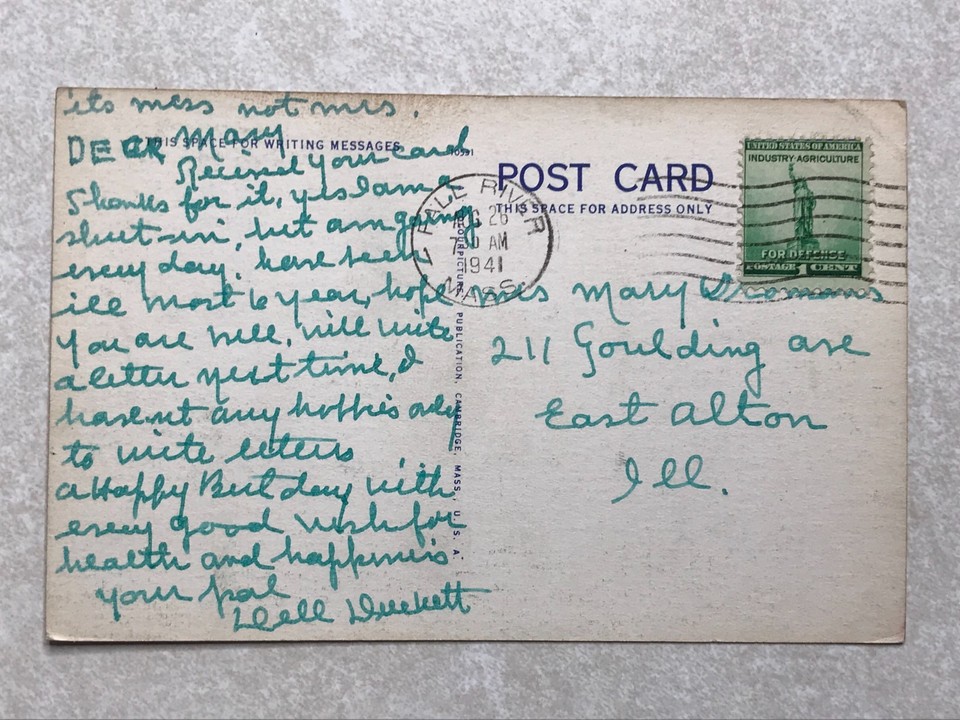 its mess not mrs.
THIS SPACE FOR WRITING MESSAGES
DEar Mary
Received your card
thanks for it, yes I am a
shut-in, but am going
every day, have been
ill most 6 year, hope
you are well, will write
a letter next time, I
havent any hobbies only
to write letters
a Happy Birtday with
every good wish for
health and happiness
your pal
Dell Duckett
70591
COLOURPICTURE PUBLICATION, CAMBRIDGE, MASS., U. S. A.
POST CARD
THIS SPACE FOR ADDRESS ONLY
FALL RIVER
AUG 26
AM
1941
MASS.
UNITED STATES OF AMERICA
INDUSTRY·AGRICULTURE
FOR DEFENSE
POSTAGE 1 CENT
Mrs Mary
211 Goulding ave
East Alton
Ill.